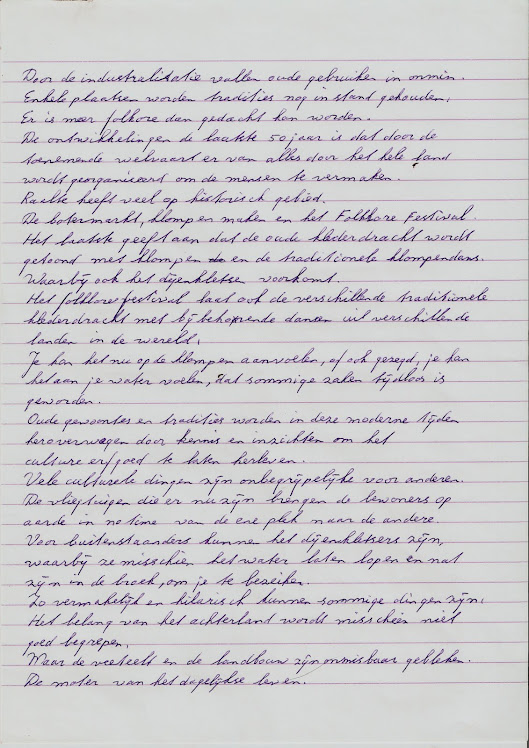 Door de industralisatie vallen oude gebruiken in onmin.
Enkele plaatsen worden tradities nog in stand gehouden.
Er is meer folkore dan gedacht kan worden.
De ontwikkelingen de laatste 50 jaar is dat door de
toenemende welvaart er van alles door het hele land
wordt georganiseerd om de mensen te vermaken.
Raalte heeft veel op historisch gebied.
De botermarkt, klompen maken en het Folklore Festival.
Het laatste geeft aan dat de oude klederdracht wordt
getoond met klompen en de traditionele klompendans.
Waarbij ook het dijenkletsen voorkomt.
Het folklore festival laat ook de verschillende traditionele
klederdracht met bij behorende dansen uit verschillende
landen in de wereld.
Je kan het nu op de klompen aanvoelen, of ook gezegd, je kan
het aan je water voelen, dat sommige zaken tijdloos is
geworden.
Oude gewoontes en tradities worden in deze moderne tijden
heroverwegen door kennis en inzichten om het
culture erfgoed te laten herleven.
Vele culturele dingen zijn onbegrijpelijke voor anderen.
De vliegtuigen die er nu zijn brengen de bewoners op
aarde in no time van de ene plek naar de andere.
Voor buitenstaanders kunnen het dijenkletsers zijn,
waarbij ze misschien het water laten lopen en nat
zijn in de broek, om je te bezeiken.
Zo vermakelijk en hilarisch kunnen sommige dingen zijn.
Het belang van het achterland wordt misschien niet
goed begrepen.
Waar de veeteelt en de landbouw zijn onmisbaar gebleken.
De moter van het dagelijkse leven.